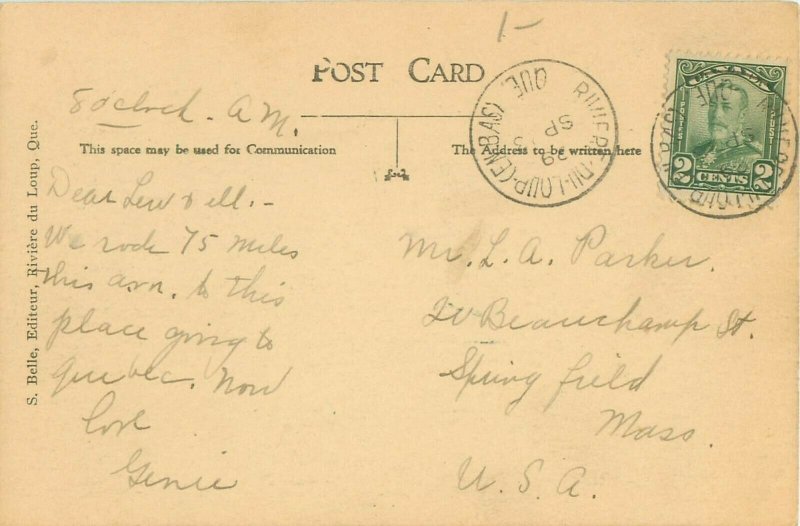 1-
POST CARD
8 oclock. A.M.
This space may be used for Communication
The Address to be written here
Dear Lew & ell.-
We rode 75 miles
this a.m. to this
place going to
Quebec. Now
Love
Genie
Mr. L. A. Parker.
Beauchamp St.
Spring field
Mass.
U. S. A.
S. Belle, Editeur, Rivière du Loup, Que.
RIVIERE-DU-LOUP-(EN-BAS) QUE
SP
29
CANADA
POSTES
POST
2 CENTS 2